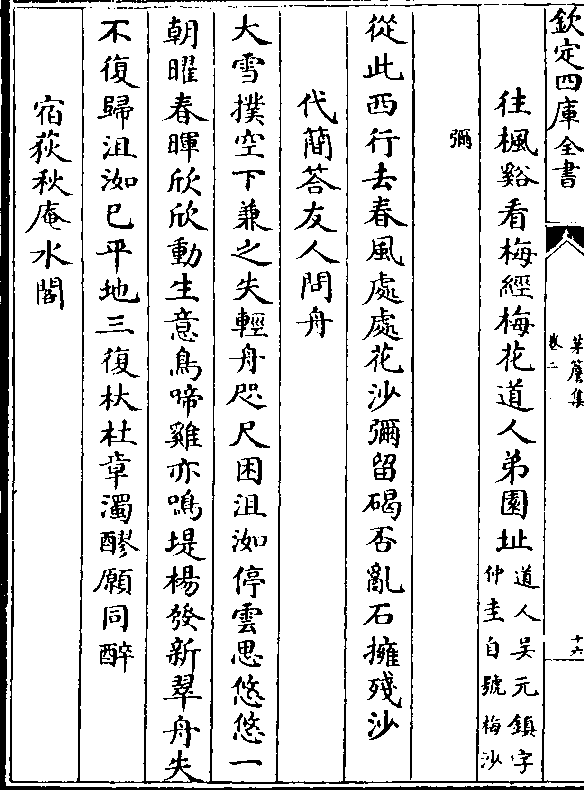 欽定四庫全書
卷二
十六
往楓谿看梅經梅花道人弟園址
道人吴元鎮字
仲圭自號梅沙
彌
從此西行去春風處處花沙彌留碣否亂石擁殘沙
代簡荅友人問舟
大雪撲空下兼之失輕舟咫尺困沮洳停雲思悠悠一
朝曜春暉欣欣動生意鳥啼雞亦鳴堤楊發新翠舟失
不復歸沮洳已平地三復杕杜章濁醪願同醉
宿荻秋庵水閣